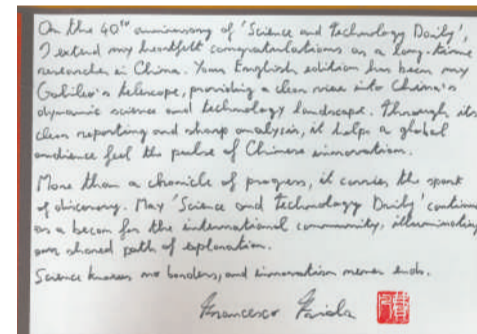 On the 40th anniversary of 'Science and Technology Daily',
I extend my heartfelt congratulations as a long-time
researcher in China. Your English edition has been my
Galileo's telescope, providing a clear view into China's
dynamic science and technology landscape. Through its
clear reporting and sharp analysis, it helps a global
audience feel the pulse of Chinese innovation.
More than a chronicle of progress, it carries the spark
of discovery. May 'Science and Technology Daily' continue
as a beacon for the international community, illuminating
our shared path of exploration.
Science knows no borders, and innovation never ends.
Francesco